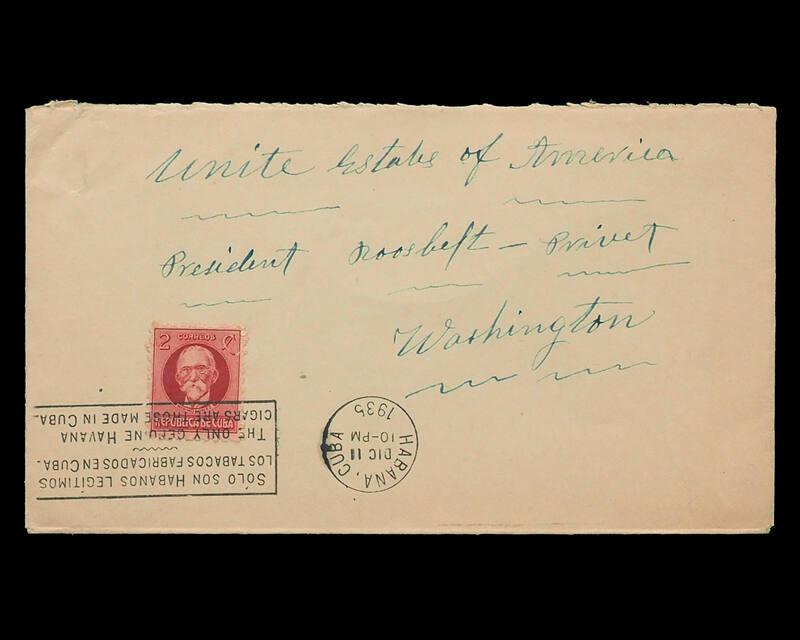 Unite Estabs of America
President Roosbeft - Privet
Washington
2 CORREOS C.
REPUBLICA DE CUBA
SÓLO SON HABANOS LEGÍTIMOS
LOS TABACOS FABRICADOS EN CUBA.
THE ONLY GENUINE HAVANA
CIGARS ARE THOSE MADE IN CUBA.
HABANA, CUBA
DIC 11
10-PM
1935